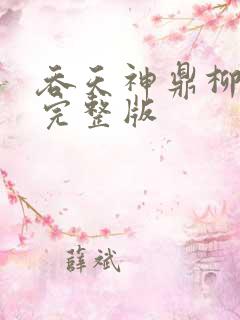 吞天神鼎柳
完整版
薛斌